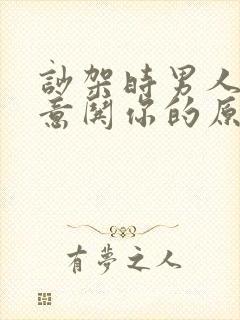 訟架時男人
意關你的原
有夢之人